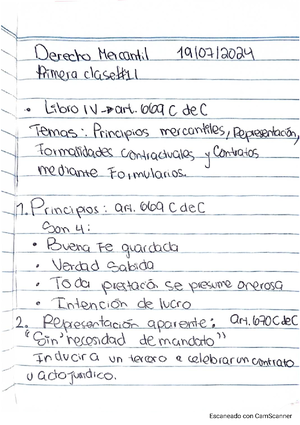 Derecho Mercantil 19/07/2024
Primera clase#11
• Libro IV → art. 669 C de C
Temas: Principios mercantiles, Representación,
Formalidades contractuales y Contratos
mediante Formularios.
1. Principios: art. 669 C de C
Son 4:
• Buena Fe guardada
• Verdad Sabida
• Toda prestació. se presume onerosa
• Intención de lucro
2. Representación aparente: Art. 670 C de C
"Sin necesidad de mandato"
Inducir a un tercero a celebrar un contrato
u acto jurídico.
Escaneado con CamScanner